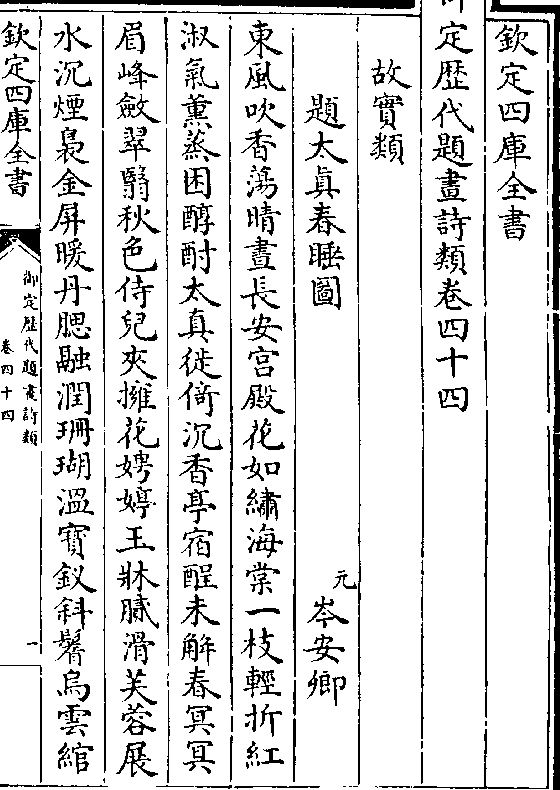 欽定四庫全書
御定歴代題畫詩類卷四十四
故實類
題太眞春睡圖
元
岑安卿
東風吹香蕩晴晝長安宫殿花如繡海棠一枝輕折紅
淑氣薰蒸困醇酎太真徙倚沉香亭宿酲未解春冥冥
眉峰斂翠翳秋色侍兒夾擁花娉婷玉牀膩滑芙蓉展
水沉煙裊金屏暖丹腮融潤珊瑚溫寳釵斜軃烏雲綰
欽定四庫全書
御定歴代題畫詩類
卷四十四
一